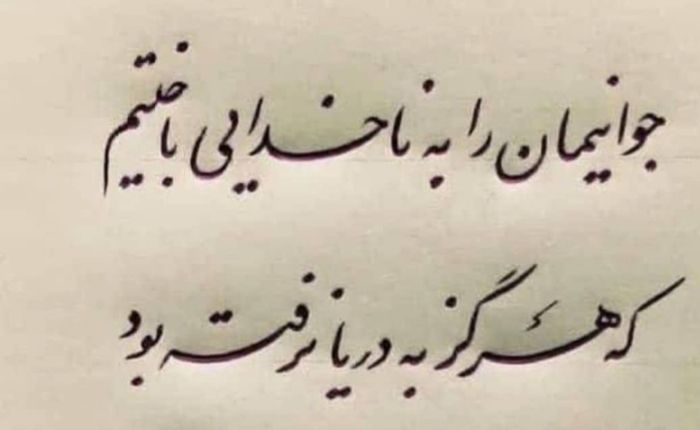 جوانیمان را به ناخدایی باختیم
که هرگز به دریا نرفته بود